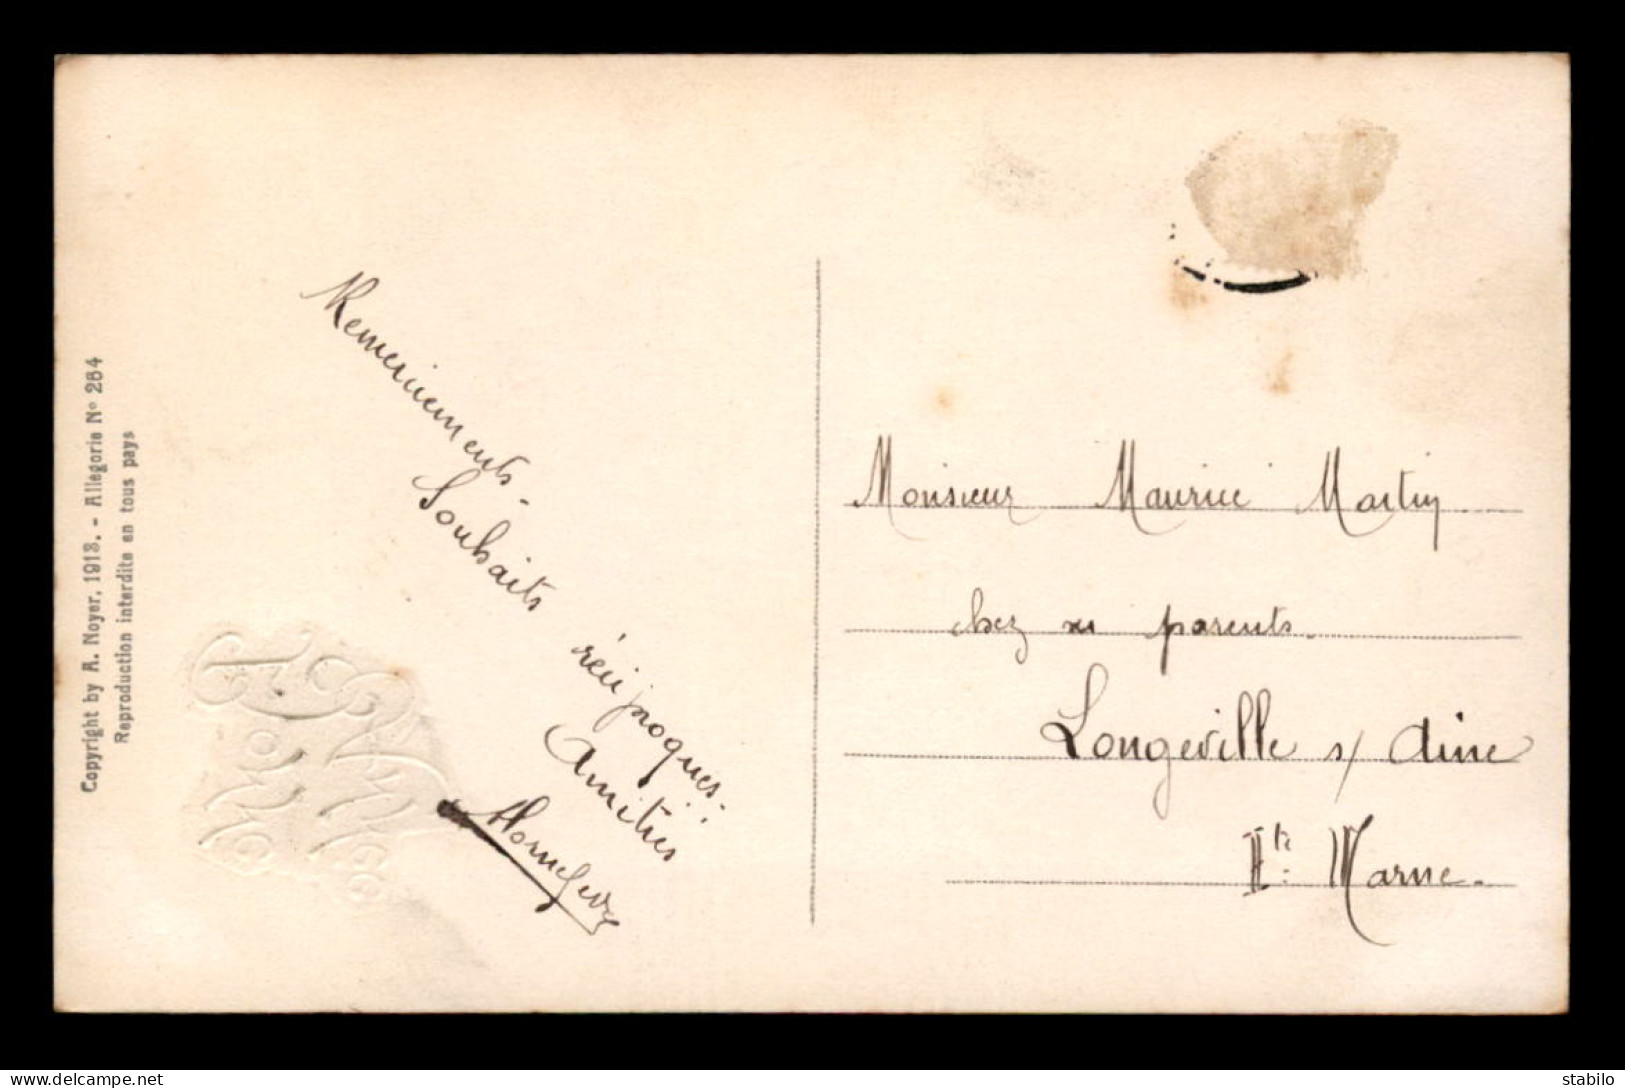 Copyright by A. Noyer, 1913. - Allegorie N° 264
Reproduction interdite en tous pays
Remerciements.
Souhaits réciproques.
Amitiés
Monsieur Maurice Martin
chez ses parents.
Longeville s/ Aine
Hte Marne.
stabilo